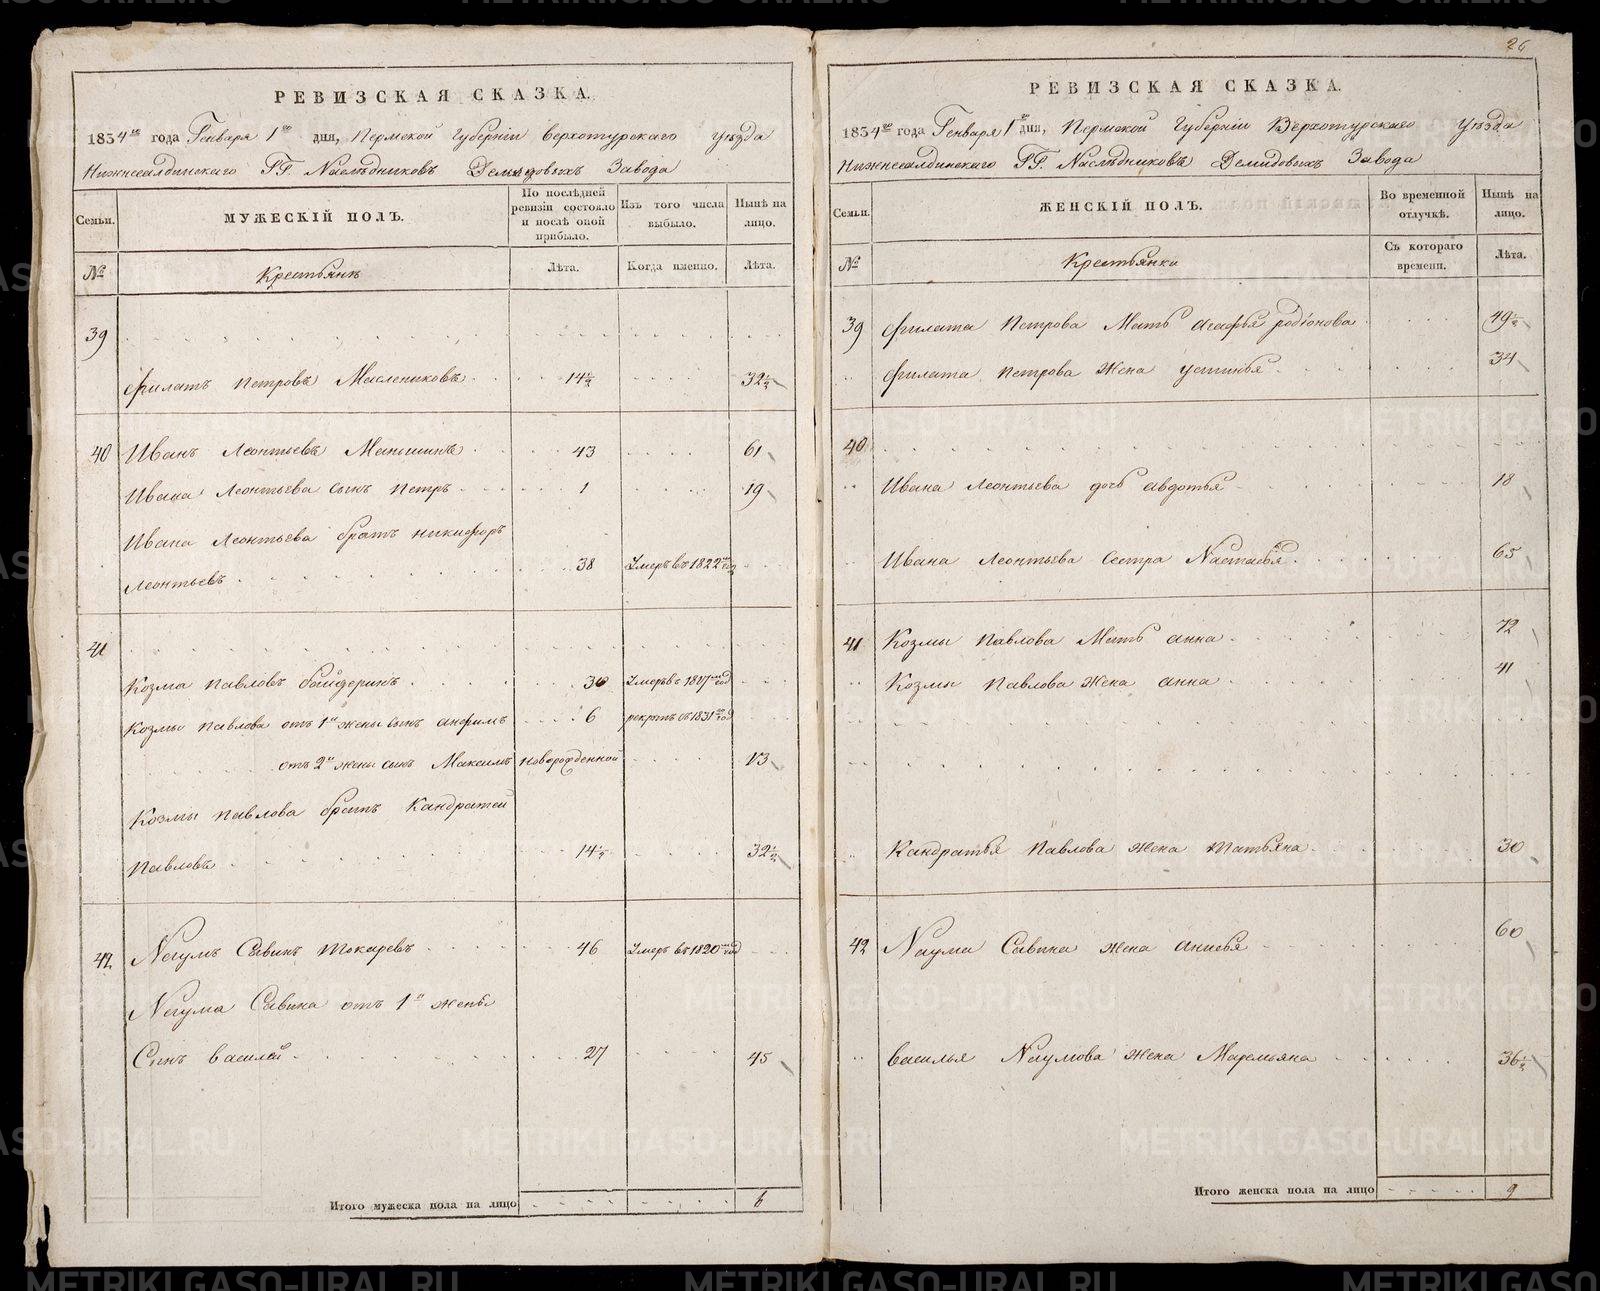 26
РЕВИЗСКАЯ СКАЗКА.
1834го года Генваря 1го дня, Пермской Губерніи Верхотурскаго Уѣзда
Нижнесалдинскаго ГГ. Наслѣдниковъ Демидовыхъ Завода
Семьи.
МУЖЕСКІЙ ПОЛЪ.
По послѣдней ревизіи состояло и послѣ оной прибыло.
Изъ того числа выбыло.
Нынѣ на лицо.
№
Крестьянѣ
Лѣта.
Когда именно.
Лѣта.
39
Филатъ Петровъ Маслениковъ 14½ 32½
40 Иванъ Леонтьевъ Маньшинъ 43 61
Ивана Леонтьева сынъ Петръ 1 19
Ивана Леонтьева братъ Никифоръ
Леонтьевъ 38 Умеръ въ 1822м год
41
Козма Павловъ Байдеринъ 30 Умеръ въ 1817м год
Козмы Павлова отъ 1й жены сынъ Анфимъ 6 рекрутъ въ 1831м год
отъ 2й жены сынъ Максимъ новорожденной 13
Козмы Павлова братъ Кандратей
Павловъ 14½ 32½
42 Наумъ Савинъ Токаревъ 46 Умеръ въ 1820м год
Наума Савина отъ 1й жены
Сынъ Василей 27 45
Итого мужеска пола на лицо 6
РЕВИЗСКАЯ СКАЗКА.
1834го года Генваря 1го дня, Пермской Губерніи Верхотурскаго Уѣзда
Нижнесалдинскаго ГГ. Наслѣдниковъ Демидовыхъ Завода
Семьи.
ЖЕНСКІЙ ПОЛЪ.
Во временной отлучкѣ.
Нынѣ на лицо.
№
Крестьянки
Съ котораго времени.
Лѣта.
39 Филата Петрова Мать Агафья Родіонова 49½
Филата Петрова Жена Устинья 34
40
Ивана Леонтьева дочь Авдотья 18
Ивана Леонтьева Сестра Настасья 65
41 Козмы Павлова Мать Анна 72
Козмы Павлова Жена Анна 41
Кандратья Павлова Жена Татьяна 30
42 Наума Савина Жена Анисья 60
Василья Наумова Жена Маремьяна 36½
Итого женска пола на лицо 9
METRIKI.GASO-URAL.RU